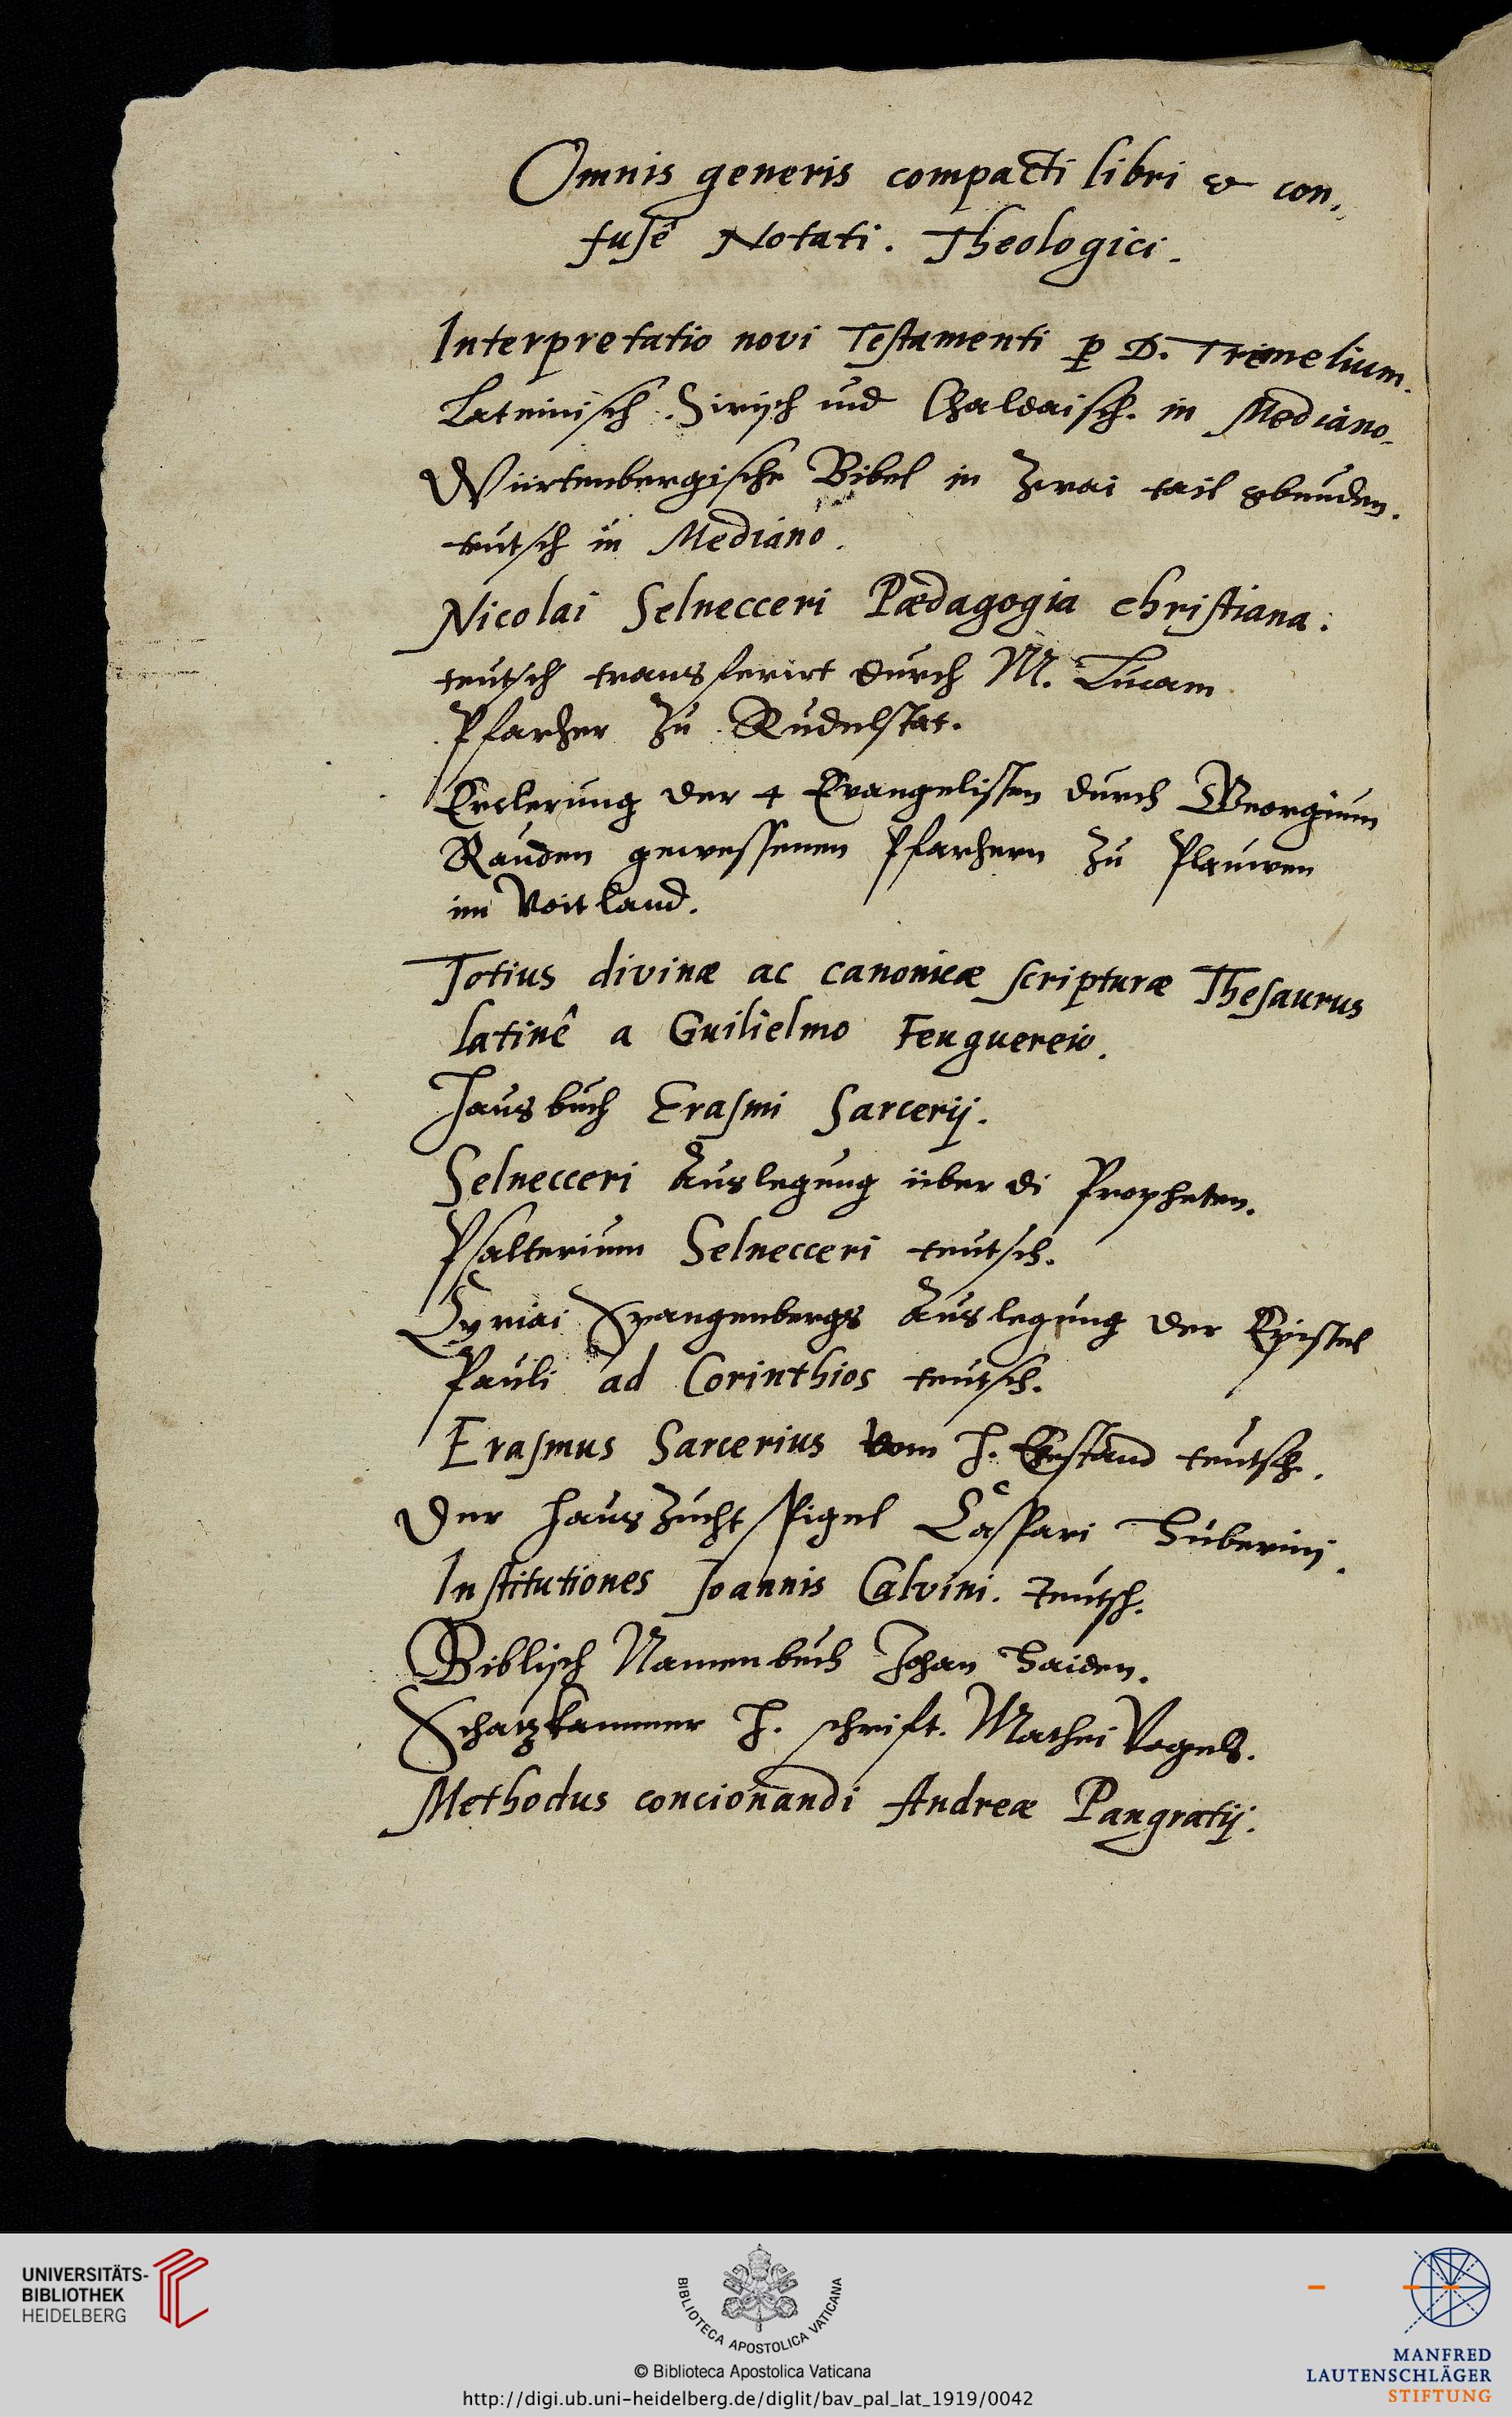 Omnis generis compacti libri & con-
fusê Notati. Theologici.
Interpretatio novi Testamenti ꝑ D. Tremelium.
Lateinisch. Sirisch und Chaldaisch. in Mediano.
Würtenbergische Bibel in Zwai tail gbunden.
teutsch in Mediano.
Nicolai Selnecceri Pædagogia christiana.
teutsch transferirt durch M. Lucam
Pfarher Zu Rudelstat.
Erclerung der 4 Evangelisten durch Georgium
Rauden gewessenen Pfarhern Zu Plauwen
im Voitland.
Totius divinæ ac canonicæ scripturæ Thesaurus
latinê a Guilielmo Feuguereio.
Hausbuch Erasmi Sarcerij.
Selnecceri Auslegung über di Propheten.
Psalterium Selnecceri teutsch.
Cyriaci Spangenbergs Auslegung der Epistel
Pauli ad Corinthios teutsch.
Erasmus Sarcerius vom H. Ehestand teutsch.
Der Hauszucht Spigel Caspari Huberini.
Institutiones Joannis Calvini. Teutsch.
Biblisch Namenbuch Johan Haiden.
Schatzkammer H. schrift. Mathei Vogels.
Methodus concionandi Andreæ Pangratij.
UNIVERSITÄTS-
BIBLIOTHEK
HEIDELBERG
BIBLIOTECA APOSTOLICA VATICANA
© Biblioteca Apostolica Vaticana
http://digi.ub.uni-heidelberg.de/diglit/bav_pal_lat_1919/0042
MANFRED
LAUTENSCHLÄGER
STIFTUNG